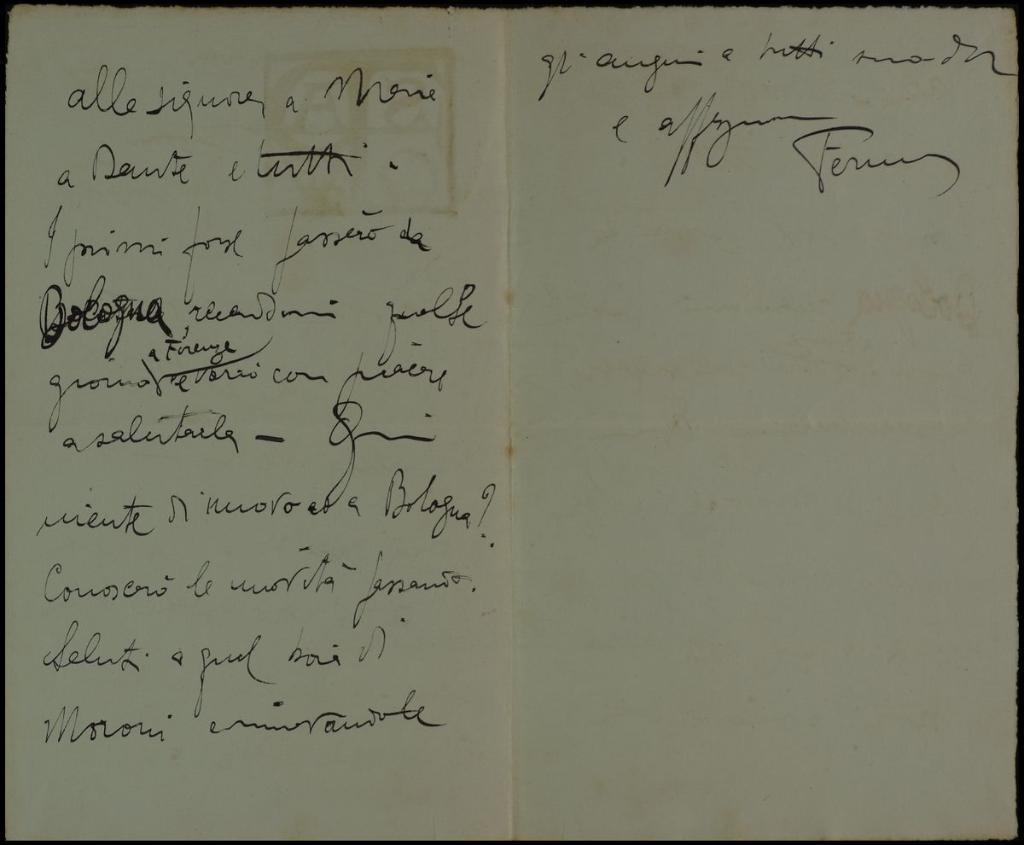 alla signora, a Maria
a Dante e tutti.
I primi forse passerò da
Bologna, recandomi qualche
a Firenze
giorno e verrò con piacere
a salutarla – Qui
niente di nuovo ed a Bologna?
Conoscerò le novità passando.
Saluti a quel boia di
Moroni e rinnovandole
gli auguri a tutti suo dev
e affezion